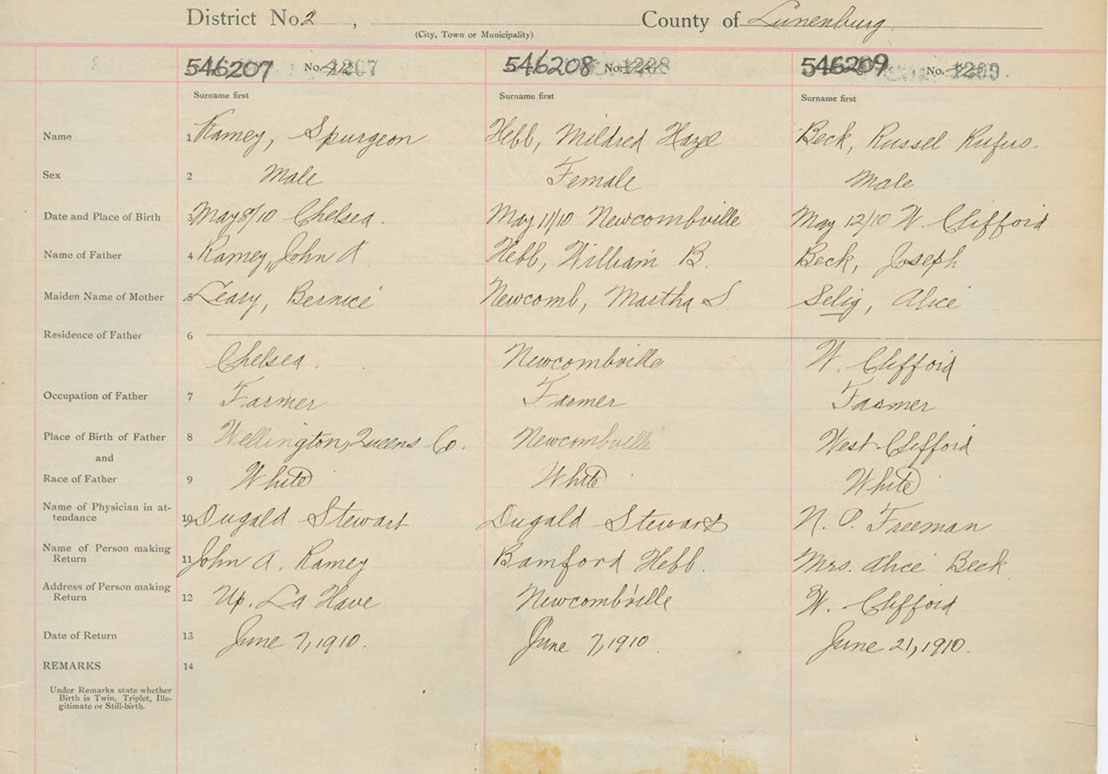 District No. 2 , County of Lunenburg
(City, Town or Municipality)
546207 No. 1207 546208 No. 1208 546209 No. 1209
Surname first Surname first Surname first
Name 1 Ramey, Spurgeon Hebb, Mildred Hazel Beck, Russel Rufus.
Sex 2 Male Female Male
Date and Place of Birth 3 May 8/10 Chelsea. May 11/10 Newcombville May 12/10 W. Clifford
Name of Father 4 Ramey, John A. Hebb, William B. Beck, Joseph
Maiden Name of Mother 5 Leary, Bernice Newcomb, Martha S. Selig, Alice
Residence of Father 6
Chelsea. Newcombville W. Clifford
Occupation of Father 7 Farmer Farmer Farmer
Place of Birth of Father 8 Wellington, Queens Co. Newcombville West Clifford
and
Race of Father 9 White White White
Name of Physician in at-
tendance 10 Dugald Stewart Dugald Stewart N. P. Freeman
Name of Person making
Return 11 John A. Ramey Bamford Hebb. Mrs. Alice Beck
Address of Person making
Return 12 Up. La Have Newcombville W. Clifford
Date of Return 13 June 7, 1910. June 7, 1910. June 21, 1910.
REMARKS 14
Under Remarks state whether
Birth is Twin, Triplet, Ille-
gitimate or Still-birth.